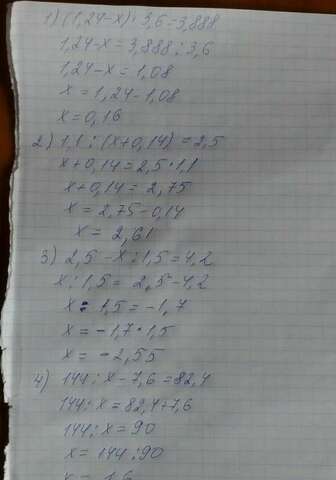 1) (1,24-x)·3,6=3,888
1,24-x=3,888:3,6
1,24-x=1,08
x=1,24-1,08
x=0,16
2) 1,1:(x+0,14)=2,5
x+0,14=2,5·1,1
x+0,14=2,75
x=2,75-0,14
x=2,61
3) 2,5-x:1,5=4,2
x:1,5=2,5-4,2
x:1,5=-1,7
x=-1,7·1,5
x=-2,55
4) 144:x-7,6=82,4
144:x=82,4+7,6
144:x=90
x=144:90
x=1,6